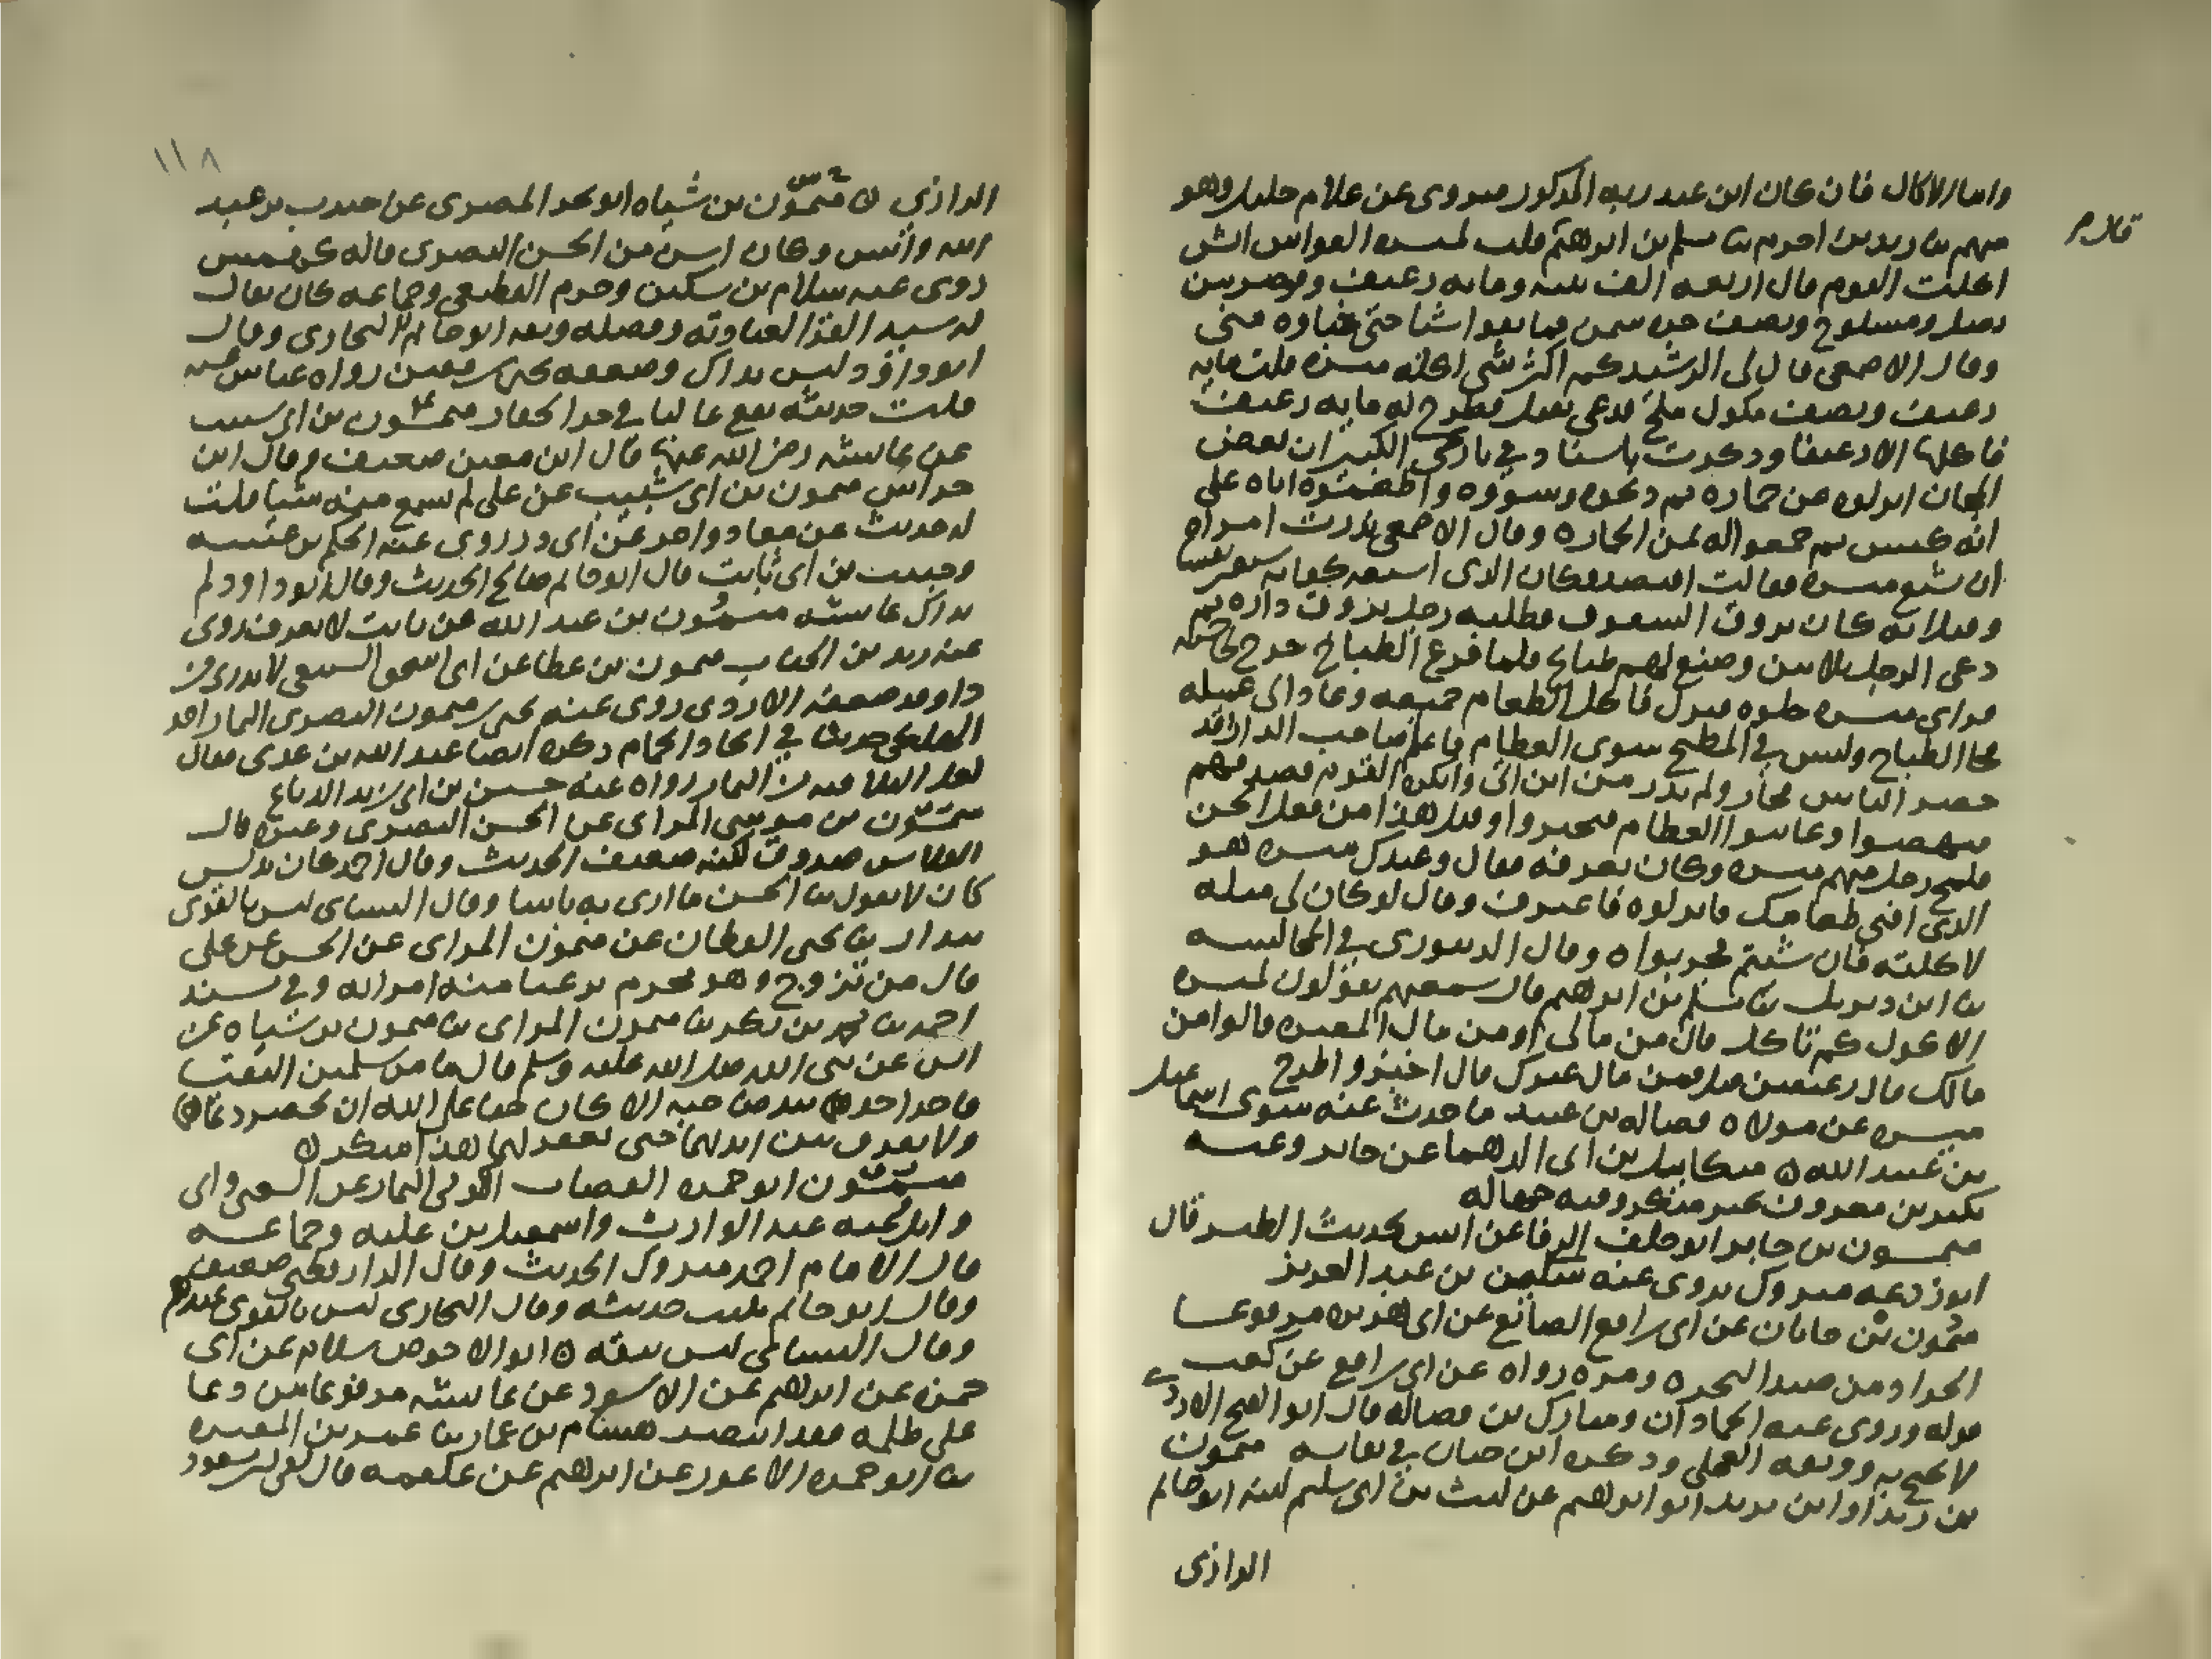 واما الاكال فان كان ابن عبد ربه المذكور فيروى عن غلام خليل وهو
متهم بنا زيد بن اخرم بنا مسلم بن ابرهيم قلت لميسره التراس ايش
اكلت اليوم قال اربعه الف تينه ومايه رغيف وقوصرتين
بصل ومسلوخ ونصف جره سمن فما بقوا شيا حتى خباوه منى
وقال الاصمعى قال لى الرشيد كم اكثر شى اكله ميسره قلت مايه
رغيف ونصف مكوك ملح فدعى بفيل فطرح له مايه رغيف
فاكلها الا رغيفا وذكرت باسناد فى تاريخى الكبير ان بعض
المجان انزلوه عن حماره ثم ذبحوه وشووه واطعموه اياه على
انه كبش ثم جمعوا له ثمن الحماره وقال الاصمعى نذرت امراه
ان تشبع ميسره فقالت اقتصد فكان الذى اشبعه كفايه سبعين نفسا
وقيل انه كان يزوق السقوف فطلبه رجل يزوق داره ثم
دعى الرجل ثلاثين وصنع لهم طباخ فلما فرغ الطباخ خرج لحاجته
فراى ميسره خلوه فنزل فاكل الطعام جميعه وعاد الى عمله
فجا الطباخ وليس فى المطبخ سوى العظام فاعلم صاحب الدار وقد
حضر الناس فحار ولم يدر من اين اتى وانكره القوم فصدقهم
فنهضوا وعاينوا العظام فتحيروا وقيل هذا من فعل الجن
فلمح رجل منهم ميسره وكان يعرفه فقال وعندك ميسره هو
الذى افنى طعامك فانزلوه فاعترف وقال لو كان لى مثله
لاكلته فان شئتم فجربوا ه وقال الدينورى فى المجالسه
بنا ابن ديزيل بنا مسلم بن ابرهيم قال سمعتهم يقولون لميسره
الاكول كم تاكل قال من مالى او من مال الغير قالوا من
مالك قال رغيفين قيل فمن مال غيرك قال اخبز واطرح
ميسره عن مولاه فضاله بن عبيد ما حدث عنه سوى اسماعيل
بن عبيد الله ه ميكاييل بن ابى الدهما عن جابر وعنه
بكير بن معروف غير منكر وفيه جهاله
ميمون بن جابر ابو خلف الرفا عن انس بحديث الطير قال
ابو زرعه متروك يروى عنه سكين بن عبد العزيز
ميمون بن جابان عن ابى رافع الصائغ عن ابى هريره مرفوعا
الجراد من صيد البحر ه ومره رواه عن ابى رافع عن كعب
قوله وروى عنه الحمادان ومبارك بن فضاله قال ابو الفتح الازدى
لا يحتج به ووثقه العجلى وذكره ابن حبان فى ثقاته ميمون
بن زيد او ابن يزيد ابو ابرهيم عن ليث بن ابى سليم لينه ابو حاتم
الرازى
١١٨
الرازى ه ميمون بن سياه ابو بحر البصرى عن جندب بن عبد
الله وانس وكان اسن من الحسن البصرى قاله كهمس
روى عنه سلام بن مسكين وحزم القطعى وجماعه كان يقال
له سيد القرا لعبادته وفضله وثقه ابو حاتم والبخارى وقال
ابو داود ليس بذاك وضعفه يحيى بن معين رواه عباس عنه
قلت حديثه يقع عاليا فى جزا الحفار ميمون بن ابى شبيب
عن عايشه رضى الله عنها قال ابن معين ضعيف وقال ابن
خراش ميمون بن ابى شبيب عن على لم يسمع منه شيا قلت
له حديث عن معاذ واخر عن ابى ذر روى عنه الحكم بن عتيبه
وحبيب بن ابى ثابت قال ابو حاتم صالح الحديث وقال ابو داود لم
يدرك عايشه ميمون بن عبد الله عن ثابت لا يعرف روى
عنه زيد بن الحباب ميمون بن عطا عن ابى اسحق السبيعى لا يدرى من
ذا وقد ضعفه الازدى روى عنه يحيى ميمون البصرى التمار احد
الهلكى حديثا فى اتخاذ الحمام ذكره ايضا عبد الله بن عدى فقال
لعل البلا فيه من التمار رواه عنه حسين بن ابى زيد الدباغ
ميمون بن موسى المراى عن الحسن البصرى وغيره قال
الفلاس صدوق لكنه ضعيف الحديث وقال احمد كان يدلس
كان لا يقول بنا الحسن ما ارى به باسا وقال النساى ليس بالقوى
بندار بنا يحيى القطان عن ميمون المراى عن الحسن عن على
قال من تزوج وهو محرم نزعنا منه امراته وفى مسند
احمد بنا محمد بن بكر بنا ميمون المراى بنا ميمون بن سياه عن
انس عن نبى الله صلى الله عليه وسلم قال ما من مسلمين التقيا
فاخذ احدهما بيد صاحبه الا كان حقا على الله ان يحضر دعاهما
ولا يفرق بين ايديهما حتى يغفر لهما هذا منكر ه
ميمون ابو حمزه القصاب الكوفى التمار عن الشعبى وابى
وايل عنه عبد الوارث واسمعيل بن عليه وجماعه
قال الامام احمد متروك الحديث وقال الدارقطنى ضعيف
وقال ابو حاتم يكتب حديثه وقال البخارى ليس بالقوى عندهم
وقال النسائى ليس بثقه ه ابو الاحوص سلام عن ابى
حمزه عن ابرهيم عن الاسود عن عايشه مرفوعا من دعا
على ظلمه فقد انتصر هشام بن عمار بنا عمر بن المغيره
بنا ابو حمزه الاعور عن ابرهيم عن علقمه قال لقى ابن مسعود